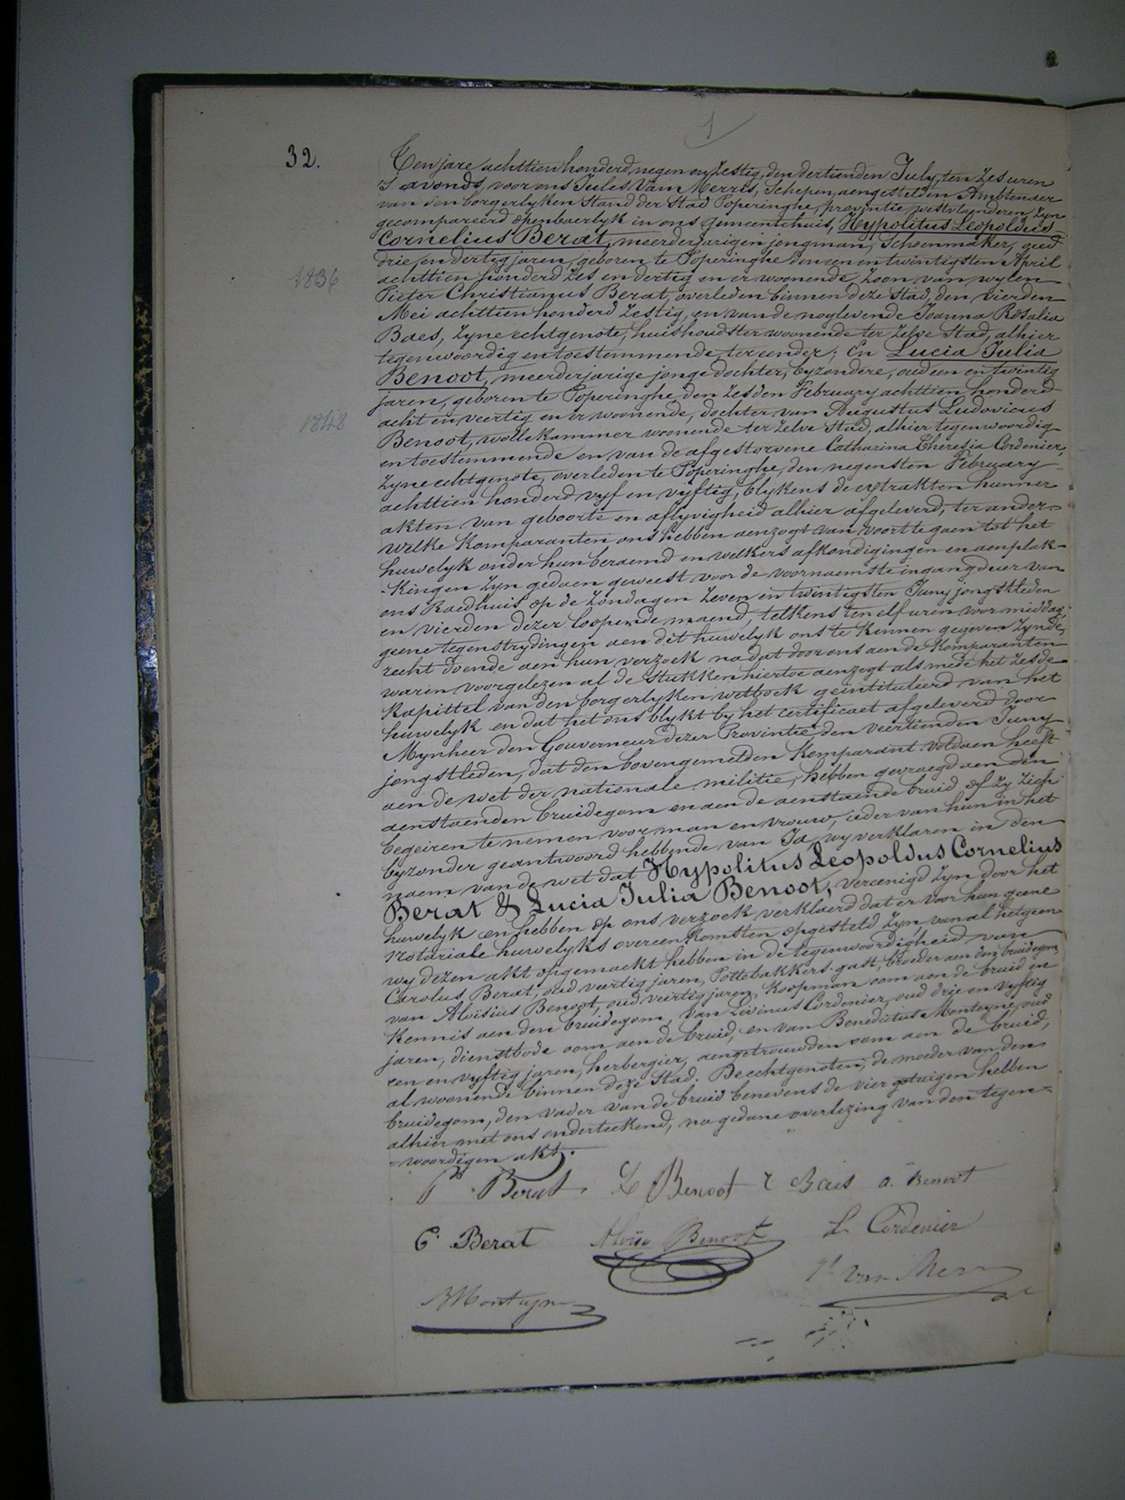 1
32.
Ten jare achttien honderd negen en zestig, den dertienden July, ten zes uren
's avonds, voor ons Jules Van Merris, Schepen, aengestelden Ambtenaer
van den borgerlyken Stand der Stad Poperinghe, provintie westvlaenderen, zyn
gecompareerd openbaerlyk in ons Gemeentehuis, Hypolitus Leopoldus
Cornelius Berat, meerderjarigen jongman, Schoenmaker, oud
drie en dertig jaren, geboren te Poperinghe den een en twintigsten April
1836
achttien honderd zes en dertig en er woonende, Zoon van wylen
Pieter Christianus Berat, overleden binnen deze Stad, den vierden
Mei achttien honderd zestig, en van de noglevende Joanna Rosalia
Baes, zyne echtgenote, huishoudster woonende ter zelve Stad, alhier
tegenwoordig en toestemmende, ter eender; En Lucia Julia
Benoot, meerderjarige jonge dochter, byzondere, oud een en twintig
jaren, geboren te Poperinghe, den zesden February achttien honderd
1848
acht en veertig en er woonende, dochter van Augustus Ludovicus
Benoot, wollekammer woonende ter zelve Stad, alhier tegenwoordig
en toestemmende en van de afgestorvene Catharina Theresia Cordenier,
zyne echtgenote, overleden te Poperinghe, den negensten February
achttien honderd vyf en vyftig, blykens de extrakten hunner
akten van geboorte en aflyvigheid alhier afgeleverd, ter ander
welke komparanten ons hebben aenzogt van voort te gaen tot het
huwelyk onder hun beraemd en welkers afkondigingen en aenplak-
-kingen zyn gedaen geweest voor de voornaemste ingangdeur van
ons Raedhuis op de zondagen zeven en twintigsten Juny jongstleden
en vierden dezer loopende maend, telkens ten elf uren voormiddag;
geene tegenstrydingen aen dit huwelyk ons te kennen gegeven zynde,
recht doende aen hun verzoek na dat door ons aen de komparanten
waren voorgelezen al de stukken hiertoe aenzogt als mede het zesde
kapittel van den borgerlyken wetboek geïntituleerd van het
huwelyk en dat het ons blykt by het certificaet afgeleverd door
Mynheer den Gouverneur dezer Provintie, den veertienden Juny
jongstleden, dat den bovengemelden komparant voldaen heeft
aen de wet der nationale militie, hebben gevraegd aen den
aenstaenden bruidegom en aen de aenstaende bruid of zy zich
begeiren te nemen voor man en vrouw, ieder van hun in het
byzonder geantwoord hebbende van Ja, wy verklaren in den
naem van de wet dat Hypolitus Leopoldus Cornelius
Berat & Lucia Julia Benoot, vereenigd zyn door het
huwelyk en hebben op ons verzoek verklaerd dat er voor hun geene
notariale huwelyks overeenkomsten opgesteld zyn, van al hetgeen
wy dezen akt opgemaekt hebben in de tegenwoordigheid van
Carolus Berat, oud veertig jaren, Pottebakkers gast, broeder aen den bruidegom,
van Aloisius Benoot, oud veirtig jaren, koopman oom aen de bruid en
kennis aen den bruidegom, van Livinus Cordenier, oud drie en vyftig
jaren, dienstbode oom aen de bruid, en van Benedictus Montagne, oud
een en vyftig jaren, herbergier, aengetrouwden oom aen de bruid,
al woonende binnen deze Stad. De echtgenoten, de moeder van den
bruidegom, den vader van de bruid benevens de vier getuigen hebben
alhier met ons onderteekend, na gedane overlezing van den tegen-
-woordigen akt.
Berat L Benoot Baes a. Benoot
C. Berat Aloïse Benoot L. Cordenier
Montagne Van Merris